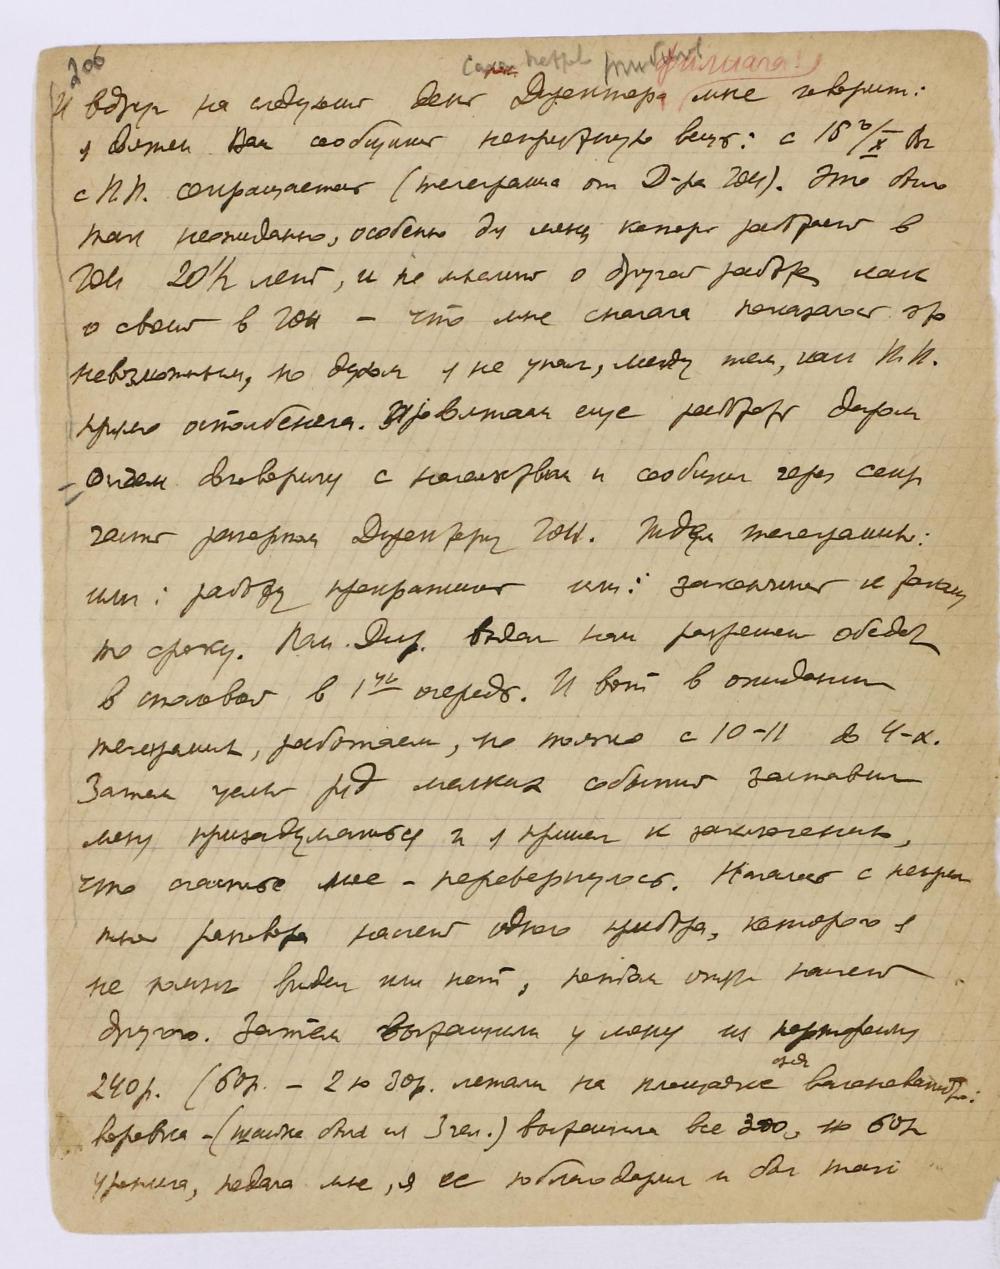 206
филиала!
И вдруг на следующий день Директора мне говорит:
я должен Вам сообщить неприятную вещь: с 15го/X Вы
с П.П. сокращаетесь (телеграмма от Д-ра ГОИ). Это было
так неожиданно, особенно для меня, который работает в
ГОИ 20 1/2 лет, и не мыслит о другой работе как
о своей в ГОИ – что мне сначала показалось это
невозможным, но духом я не упал, между тем, как П.П.
прямо остолбенела. Продолжали еще работать
договорились с начальством и сообщил через секр
часть рапортом Директору ГОИ. Ждем телеграммы:
или: работу прекратить или: закончить и
по сроку. Пом. Дир. выдал нам разрешен обедать
в столовой в 1ую очередь. И вот в ожидании
телеграммы, работаем, но только с 10-11 до 4-х.
Затем целый ряд мелких событий заставил
меня призадуматься и я пришел к заключению,
что счастье мое – перевернулось. Началось с неприя
тного разговора насчет одного прибора, которого я
не помню видел или нет, потом опять насчет
другого. Затем вытащили у меня из портфеля
240р. (60р. – 2 по 30р. лежали на площадке
воровка – (шайка была из 3 чел.) вытащила все 300, но 60р
уронила, подала мне, я ее поблагодарил и был так